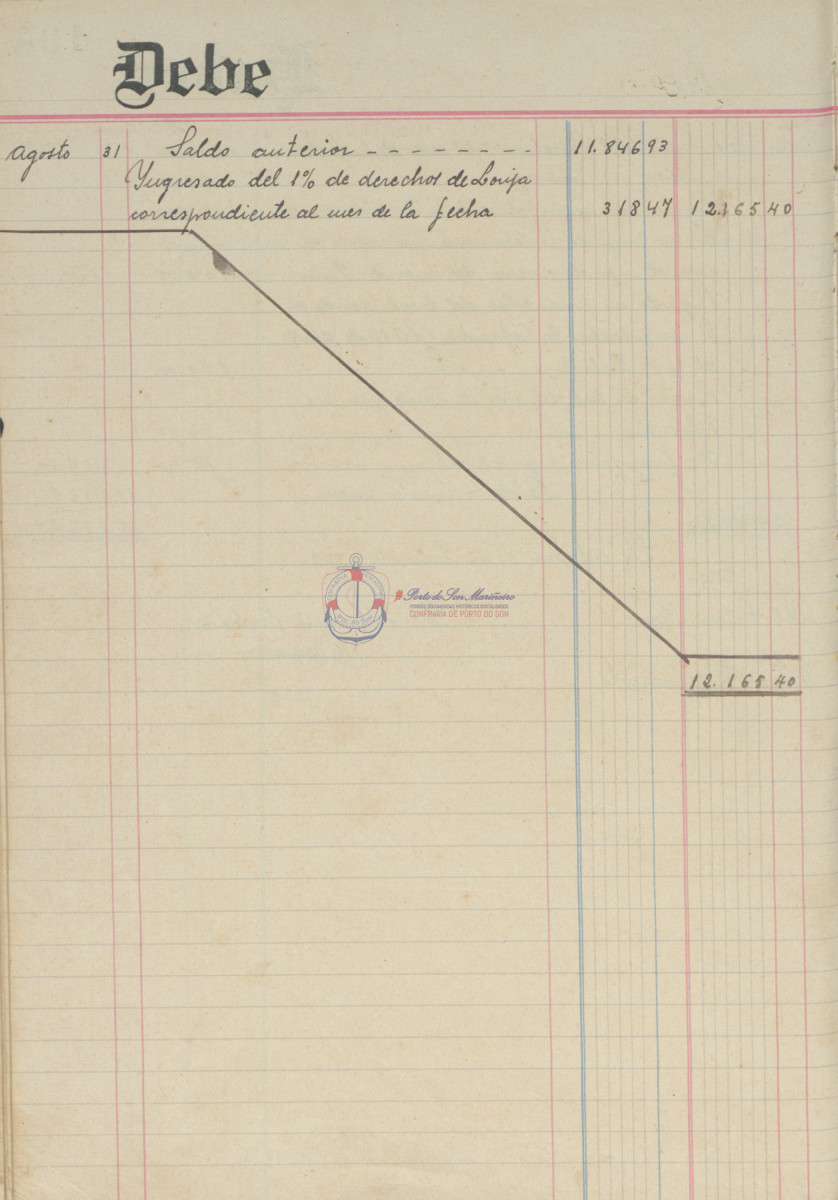 Debe
Agosto 31 Saldo anterior - - - - - - - - 11.846 93
Yngresado del 1% de derechos de Lonja
correspondiente al mes de la fecha 318 47 12.165 40
#Porto do Son Mariñeiro
FONDOS DOCUMENTAIS HISTÓRICOS DIXITALIZADOS
CONFRARÍA DE PORTO DO SON
12.165 40